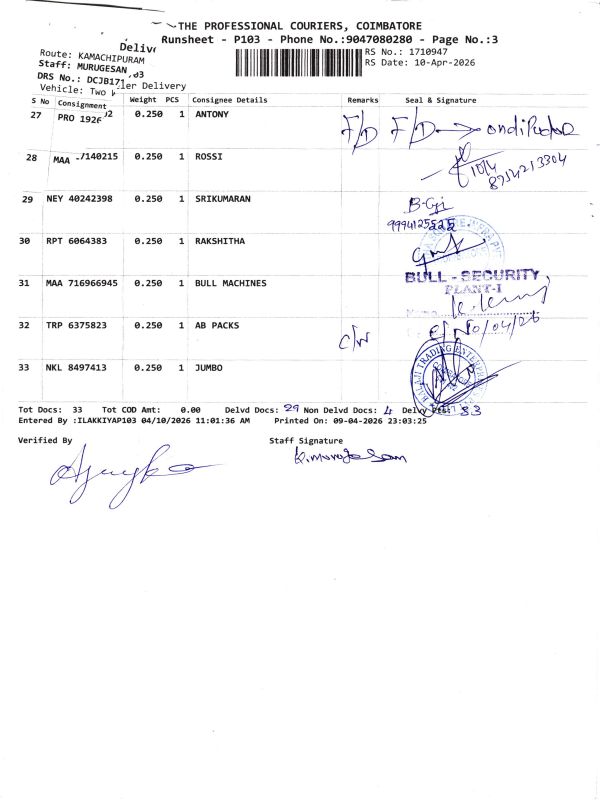 THE PROFESSIONAL COURIERS, COIMBATORE
Runsheet - P103 - Phone No.:9047080280 - Page No.:3
Route: KAMACHIPURAM
Staff: MURUGESAN
DRS No.: DCJB171
Vehicle: Two
Delivery
RS No.: 1710947
RS Date: 10-Apr-2026
S No Consignment Weight PCS Consignee Details Remarks Seal & Signature
27 PRO 1926 0.250 1 ANTONY F/D F/D
28 MAA 7140215 0.250 1 ROSSI 10/4
8754213304
29 NEY 40242398 0.250 1 SRIKUMARAN
9994125525
30 RPT 6064383 0.250 1 RAKSHITHA
31 MAA 716966945 0.250 1 BULL MACHINES BULL - SECURITY
PLANT-I
32 TRP 6375823 0.250 1 AB PACKS C/N
33 NKL 8497413 0.250 1 JUMBO
Tot Docs: 33 Tot COD Amt: 0.00 Delvd Docs: 29 Non Delvd Docs: 4 33
Entered By :ILAKKIYAP103 04/10/2026 11:01:36 AM Printed On: 09-04-2026 23:03:25
Verified By Staff Signature
K.murugesan